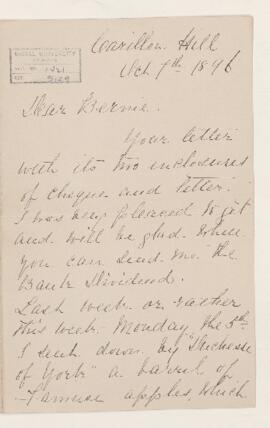 McGILL UNIVERSITY
1421
Carillon Hill
Oct. 7th 1896
Dear Bernie.
Your letter
with its two enclosures
of cheque and letter.
I was very pleased to get
and will be glad when
you can send me the
Bank Dividend.
Last week or rather
this week. Monday the 5th
I sent down by "Duchesse
of York" a barrel of
Fameuse apples, which